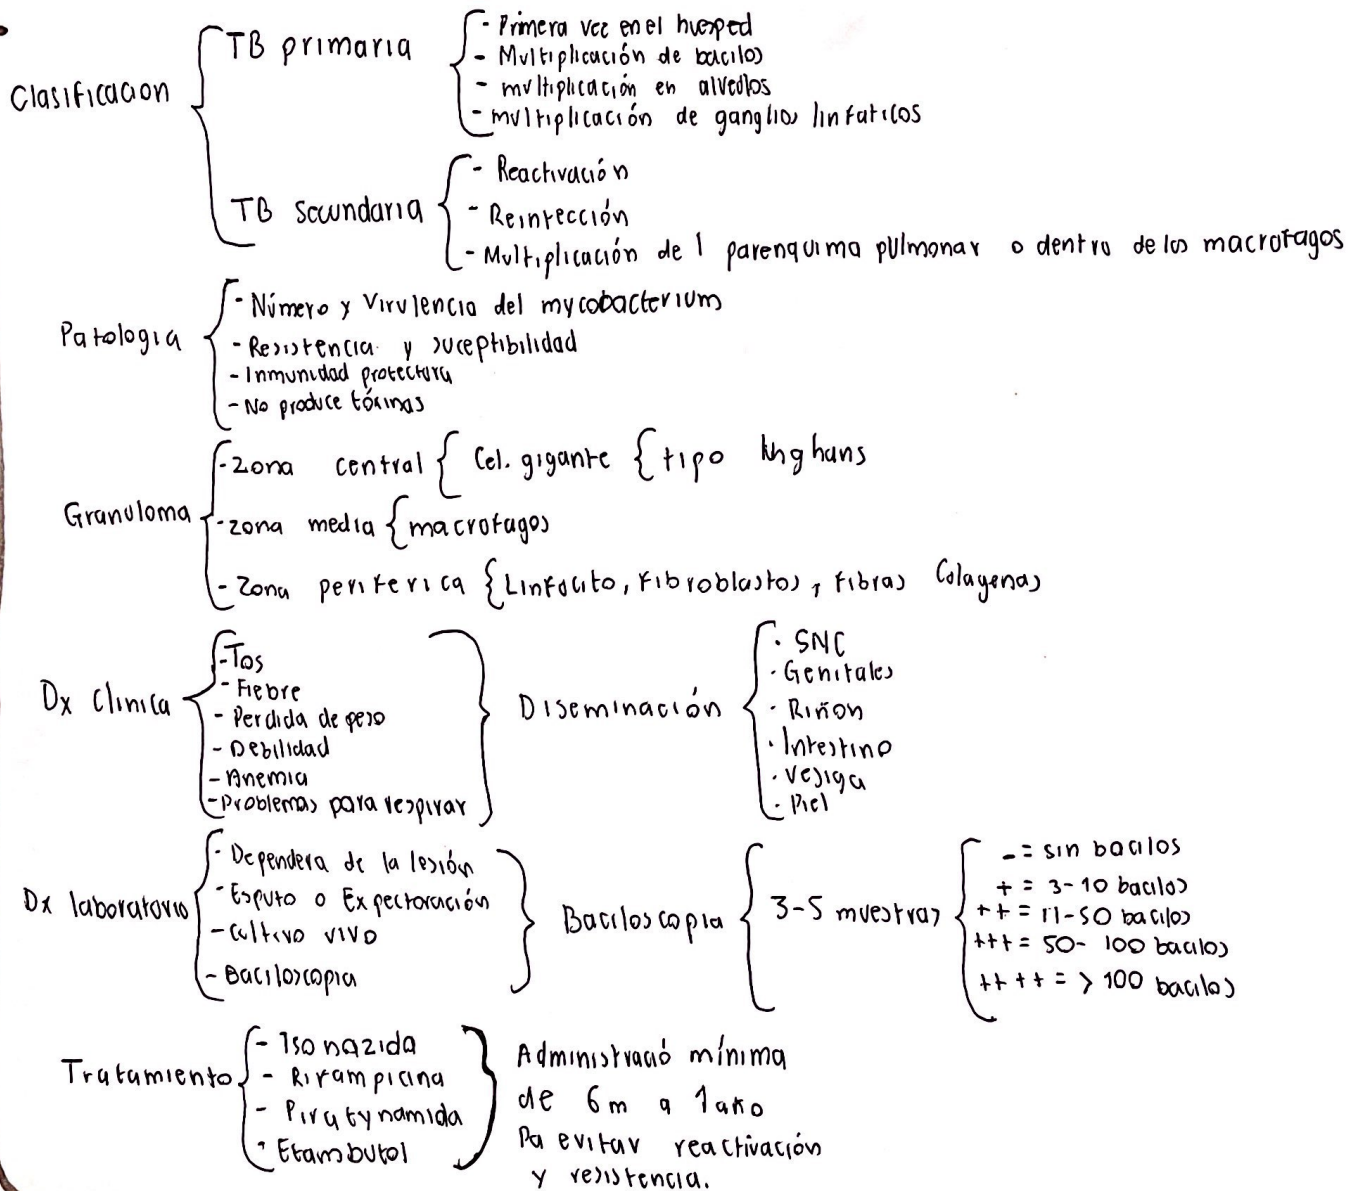 Clasificacion
TB primaria
- Primera vez en el huesped
- Multiplicación de bacilos
- multiplicación en alveolos
- multiplicación de ganglios linfaticos
TB secundaria
- Reactivación
- Reinfección
- Multiplicación de l parenquima pulmonar o dentro de los macrofagos
Patologia
- Número y Virulencia del mycobacterium
- Resistencia y suceptibilidad
- Inmunidad protectora
- No produce tóxinas
Granuloma
- Zona central { Cel. gigante { tipo
- zona media { macrofagos
- Zona periferica { Linfocito, Fibroblastos, Fibras Colagenas
Dx Clinica
- Tos
- Fiebre
- Perdida de peso
- Debilidad
- Anemia
- Problemas para respirar
Diseminación
· SNC
· Genitales
· Riñon
· Intestino
· Vejiga
· Piel
Dx laboratorio
- Dependera de la lesión
- Esputo o Expectoración
- Cultivo vivo
- Baciloscopia
Baciloscopia
3-5 muestras
- = sin bacilos
+ = 3-10 bacilos
++ = 11-50 bacilos
+++ = 50-100 bacilos
++++ = > 100 bacilos
Tratamiento
- Isonazida
- Rifampicina
-
- Etambutol
Administració mínima
de 6m a 1 año
Pa evitar reactivación
y resistencia.